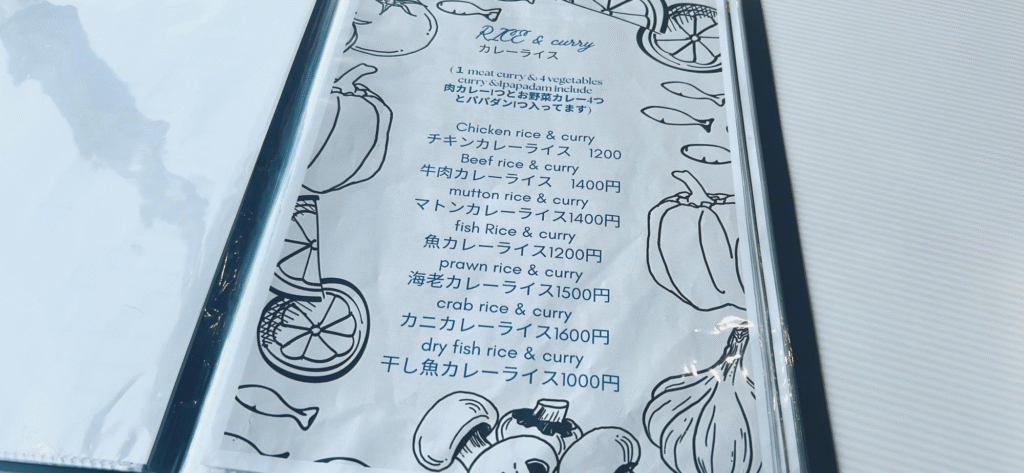 RICE & curry
カレーライス
( 1 meat curry & 4 vegetables
curry &1papadam include
肉カレー1つとお野菜カレー4つ
とパパダン1つ入ってます)
Chicken rice & curry
チキンカレーライス 1200
Beef rice & curry
牛肉カレーライス 1400円
mutton rice & curry
マトンカレーライス1400円
fish Rice & curry
魚カレーライス1200円
prawn rice & curry
海老カレーライス1500円
crab rice & curry
カニカレーライス1600円
dry fish rice & curry
干し魚カレーライス1000円